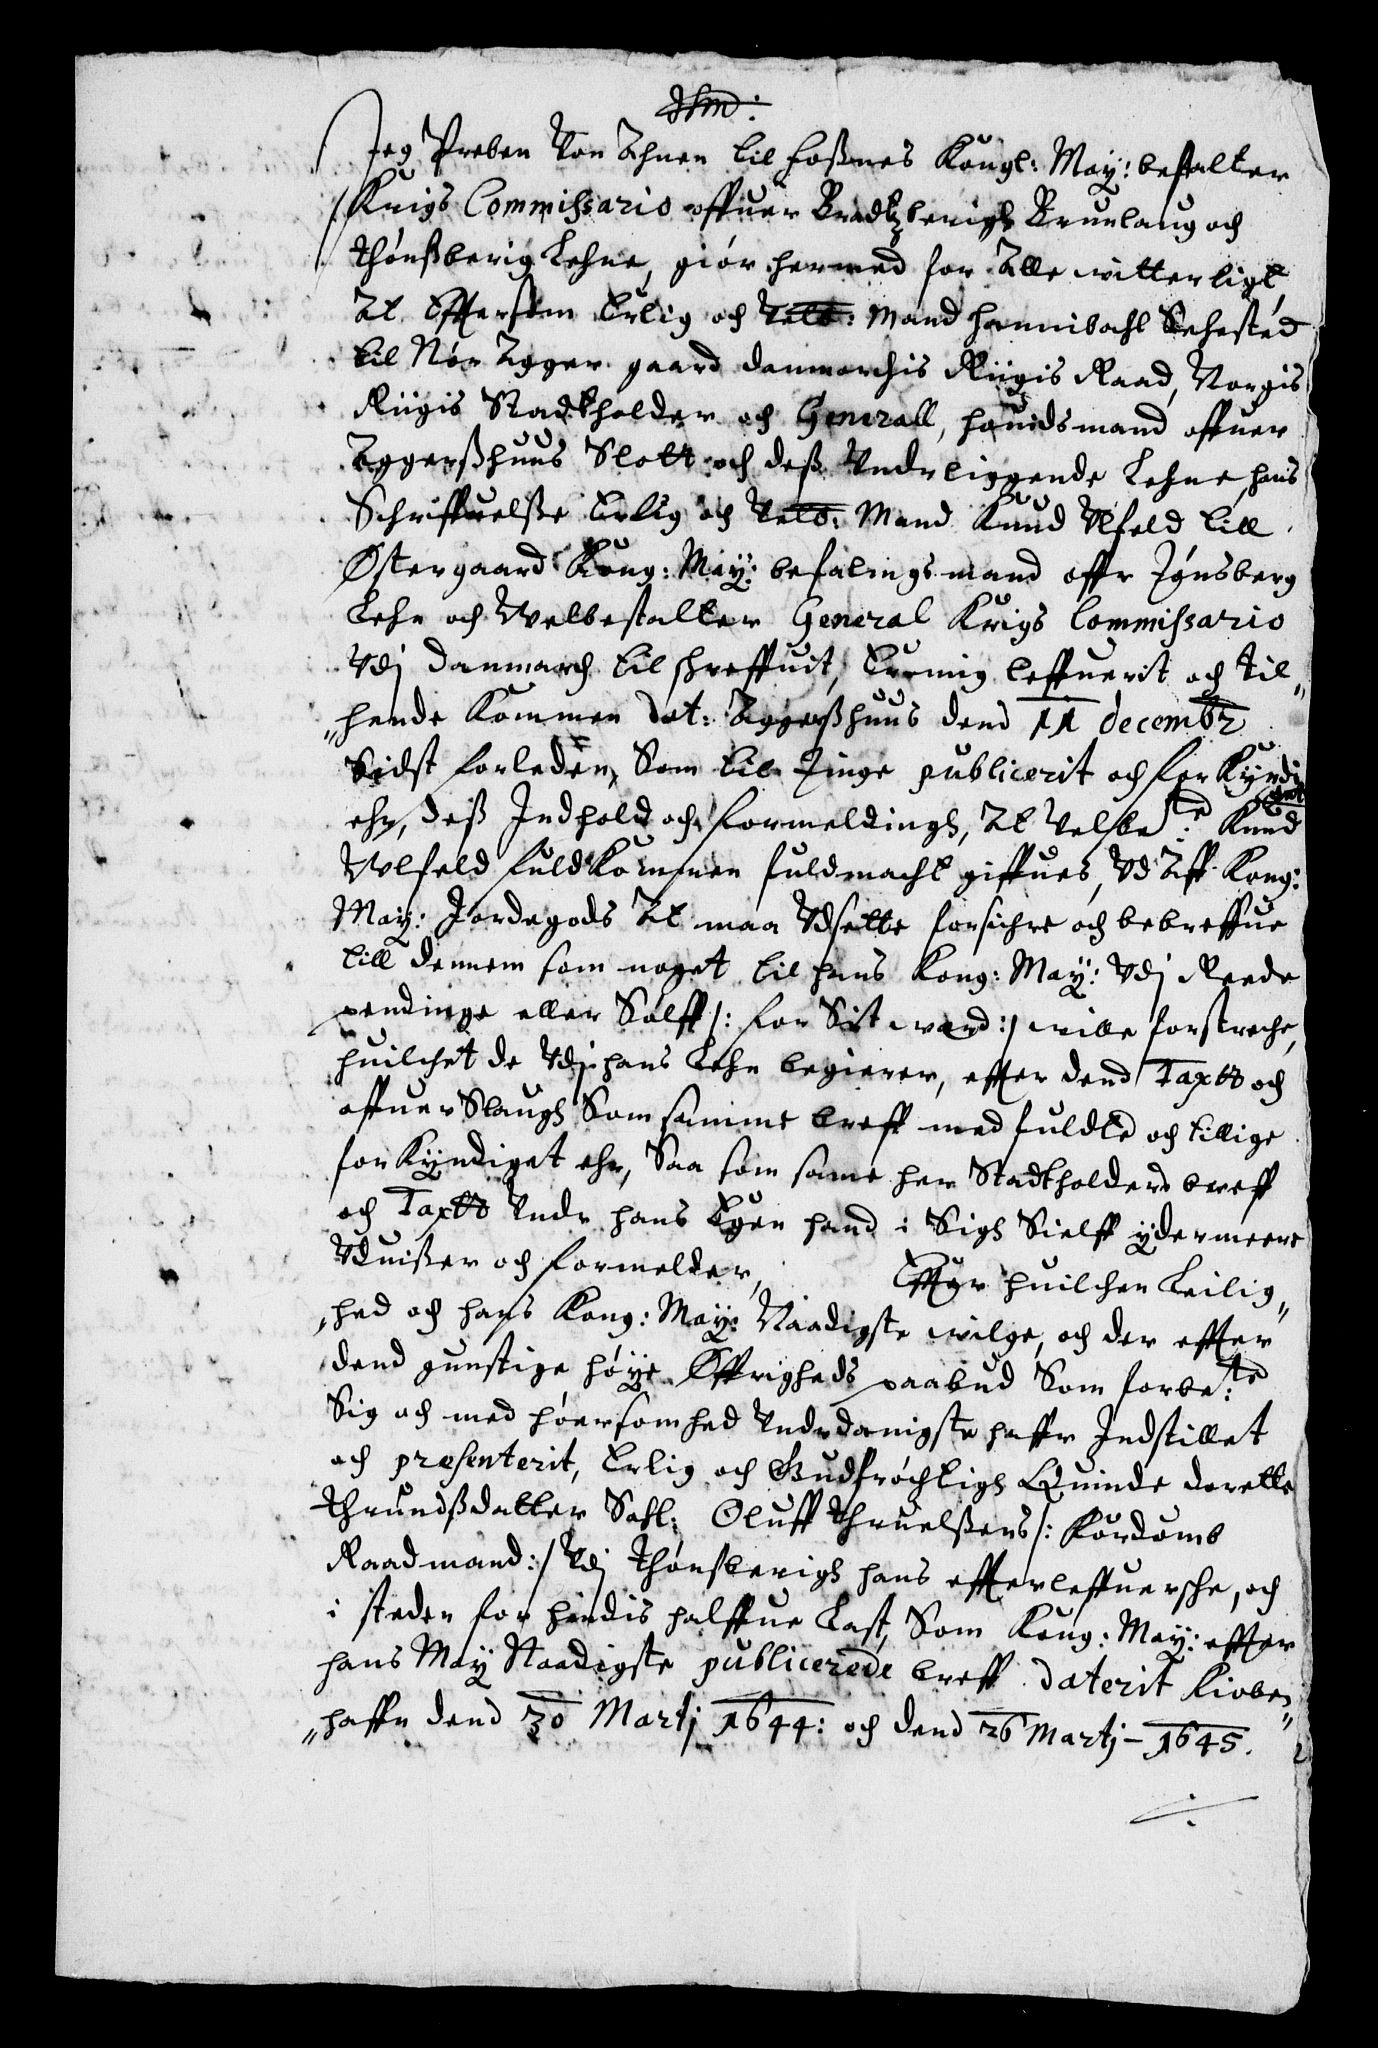 Jhm:
Jeg Preben Von Ahnen til Foßnes Kongl: May: bestalter
Krigs Commissario offuer Bradtzberigh Brunlaug och
Thønßberig Lehne, giør hermed for Alle witterligt
At Effterdom Erlig och Velb: Mand Hannibahl Sehested
til Nør Agger gaard danmarchis Riigis Raad, Norgis
Riigis Stadtholder och Generall, høuidsmand offuer
Aggerßhuus Slott och deß Vnderliggende Lehne, hans
Schriffuelße Erlig och Velb: Mand Knud Vlfeld till
Østergaard Kong: May: befalings mand offr Jønsberg
Lehn och Welbestalter General Krigs Commissario
Vdj Danmarch til schreffuit, Er mig leffuerit och til„
„hende Kommen Dat: Aggerßhuus dend 11 decembr
Sidst forleden, Som til Tinge publicerit och forKyndi
get
ehr, deß Indhold och formeldingh, At Velbete: Knud
Wlfeld fuldKommen fuldmacht giffues, Vd Aff Kong:
May: Jordegods At maa Vdsette forsichre och bebreffue
till dennem som noget til hans Kong: May: Vdj Reede
pendinge eller Sølff /: for Sit werd :/ wille forstreche,
huilchet de Vdj hans Lehn begierer, effter dend Taxt och
offuer Slaugh Som samme breff med fuldte och tillige
forKyndiget ehr, Saa som same her Stadtholders breff
och Taxt Vnder hans Egen hand i Sigh Sielff ydermeere
Vduißer och formelder, Effter huilchen Leilig„
„hed och hans Kong: May: Naadigste wilge, och der effter
dend gunstige høye Øffrigheds paabud Som forbete:
Sig och med høersomhed Vnderdanigste haffr Indstillet
och præsenterit, Erlig och Gudfrøchtigh Quinde dorette
Thrundßdatter Sahl: Oluff Thruelßens /: Fordomb
Raadmand :/ Vdj Thønsberigh hans effterleffuersche, och
i steden for hindis halffue Last, Som Kong: May: effter
hans May Naadigste publicerede breff daterit Kiøben„
„haffn dend 30 Martj 1644: och dend 26 Martj – 1645.